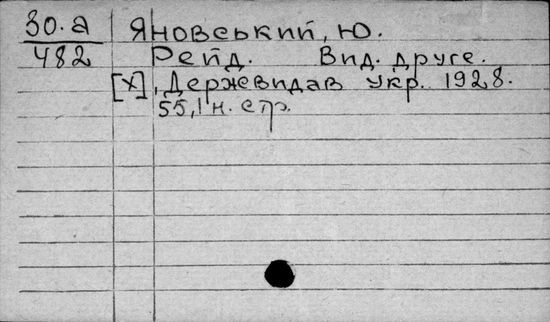 30.а Яновський, Ю.
482 Рейд. Вид. друге.
[Х], Держвидав Укр. 1928.
55,1 н. стр.